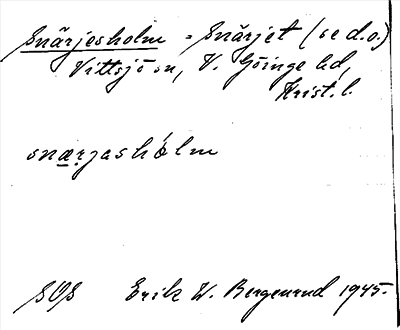 Snärjesholm = Snärjet (se d.o.)
Vittsjö sn, V. Göinge hd,
Krist. l.
snærjashólm
SOS Erik W. Bergenrud 1945.